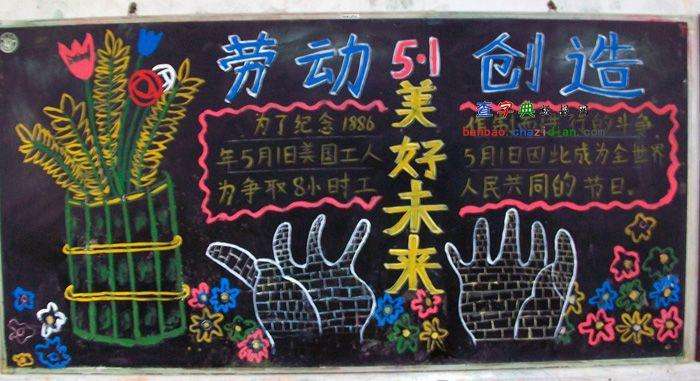 劳动 5·1 创造
美好未来
为了纪念1886
年5月1日美国工人
为争取8小时工
斗争.
5月1日因此成为全世界
人民共同的节日。
查字典
banbao.chazidian.com